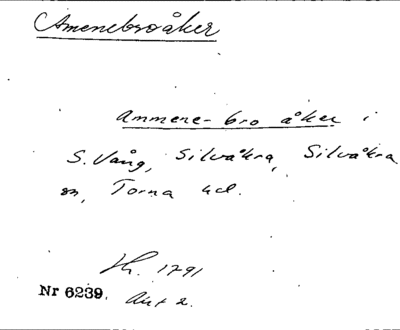 Amenebroåker
Ammene-bro åker i
S. Vång, Silvåkra, Silvåkra
sn, Torna hd.
Sk. 1791
Nr 6239. Akt 2.